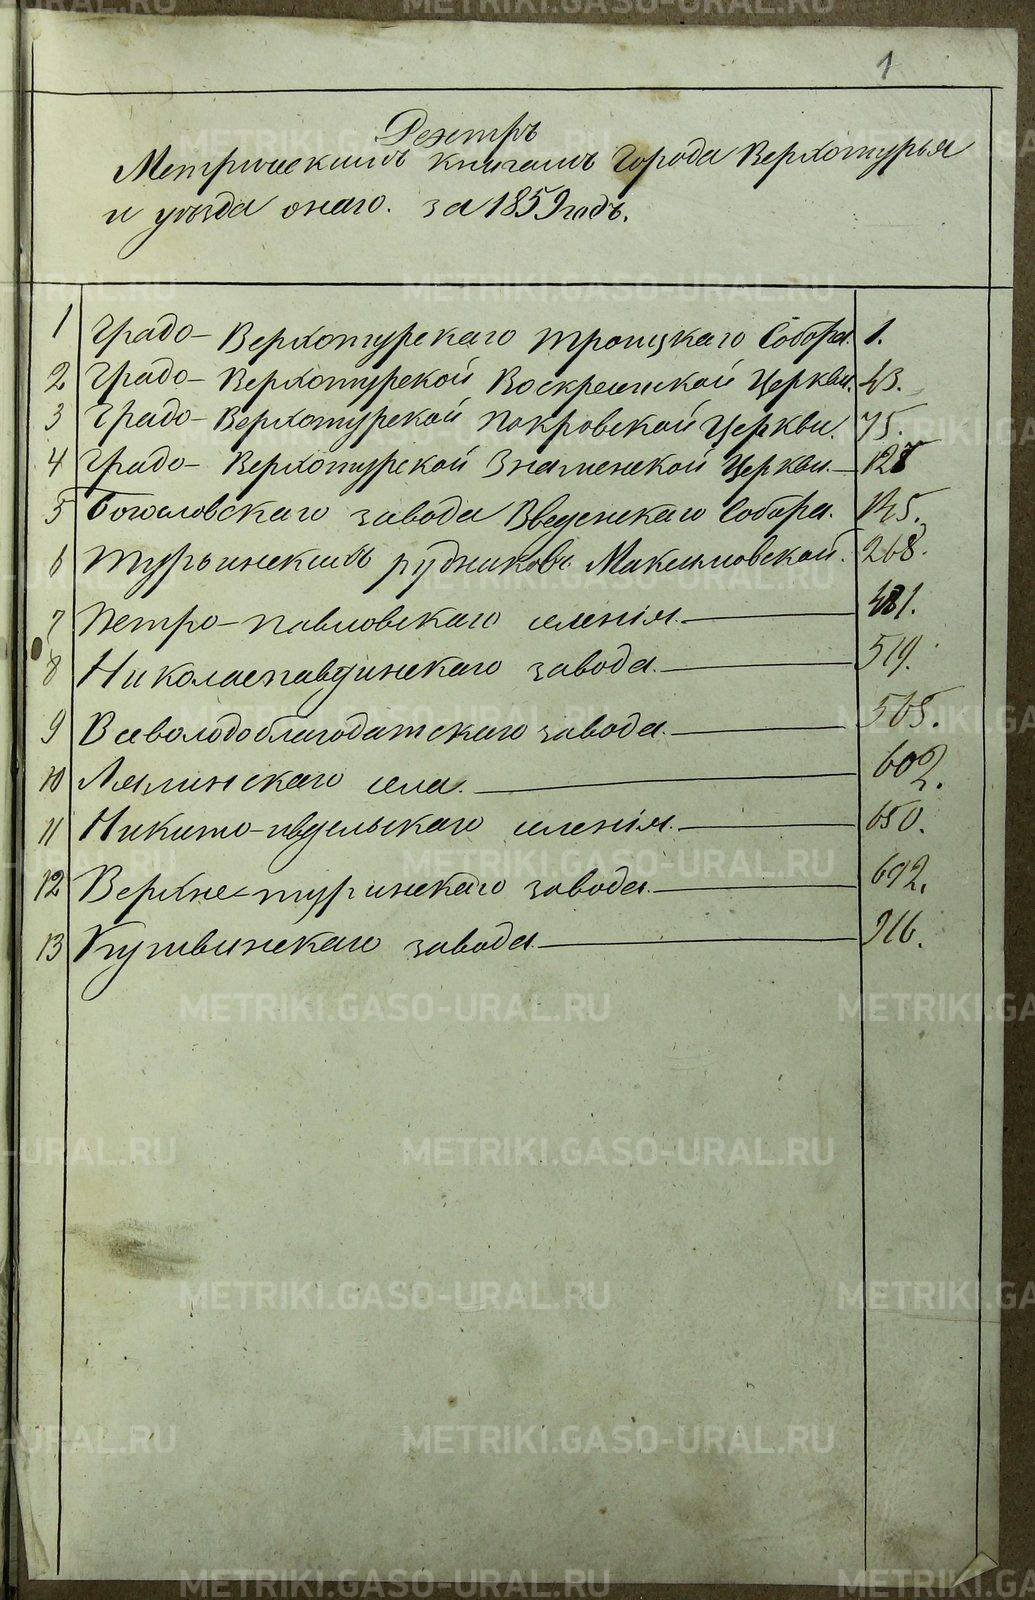 1
Реэстръ
Метрическимъ книгамъ города Верхотурья
и уѣзда онаго. за 1859 годъ.
1 Градо-Верхотурскаго Троицкаго Собора. 1.
2 Градо-Верхотурской Воскресенской Церкви. 43.
3 Градо-Верхотурской Покровской Церкви. 75.
4 Градо-Верхотурской Знаменской Церкви. — 128
5 Богословскаго завода Введенскаго Собора. 145.
6 Турьинскихъ рудниковъ Максимовской. 268.
7 Петро-павловскаго селенія. — 481.
8 Николаепавдинскаго завода. — 519.
9 Всеволодоблагодатскаго завода. — 565.
10 Лялинскаго села. — 602.
11 Никито-ивдельскаго селенія. — 650.
12 Верхне-туринскаго завода. — 692.
13 Кушвинскаго завода. — 916.
METRIKI.GASO-URAL.RU